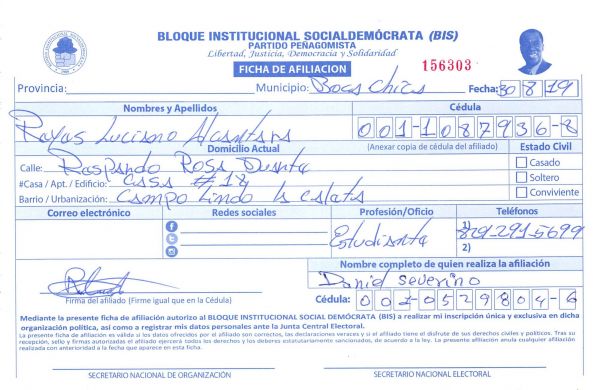 BLOQUE INSTITUCIONAL SOCIALDEMÓCRATA (BIS)
PARTIDO PEÑAGOMISTA
Libertad, Justicia, Democracia y Solidaridad
FICHA DE AFILIACION
156303
Provincia: Municipio: Boca Chica Fecha: 30 8 19
Nombres y Apellidos Cédula
Luciano Alcantara 001-1087936-8
Domicilio Actual (Anexar copia de cédula del afiliado) Estado Civil
Calle: Rosa Duarte Casado
#Casa / Apt. / Edificio: Casa #18 Soltero
Barrio / Urbanización: Campo Lindo la Caleta Conviviente
Correo electrónico Redes sociales Profesión/Oficio Teléfonos
Estudiante 1) 829-291-5699
2)
Nombre completo de quien realiza la afiliación
Daniel Severino
Firma del afiliado (Firme igual que en la Cédula) Cédula: 001-0529804-6
Mediante la presente ficha de afiliación autorizo al BLOQUE INSTITUCIONAL SOCIAL DEMÓCRATA (BIS) a realizar mi inscripción única y exclusiva en dicha
organización política, así como a registrar mis datos personales ante la Junta Central Electoral.
La presente ficha de afiliación es válida si los datos ofrecidos por el afiliado son correctos, las declaraciones veraces y si el afiliado tiene el disfrute de sus derechos civiles y políticos. Tras su
recepción, sello y firmas autorizadas el afiliado ejercerá todos los derechos y los deberes estatutariamente sancionados, de acuerdo a la ley. La presente afiliación anula cualquier afiliación
realizada con anterioridad a la fecha que aparece en esta ficha.
SECRETARIO NACIONAL DE ORGANIZACIÓN SECRETARIO NACIONAL ELECTORAL